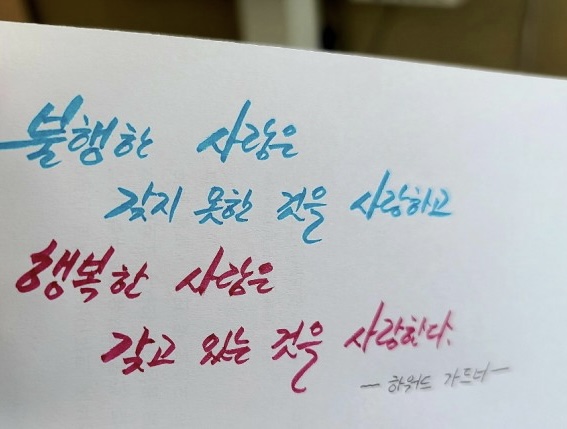 불행한 사람은
갖지 못한 것을 사랑하고
행복한 사람은
갖고 있는 것을 사랑한다.
- 하워드 가드너 -